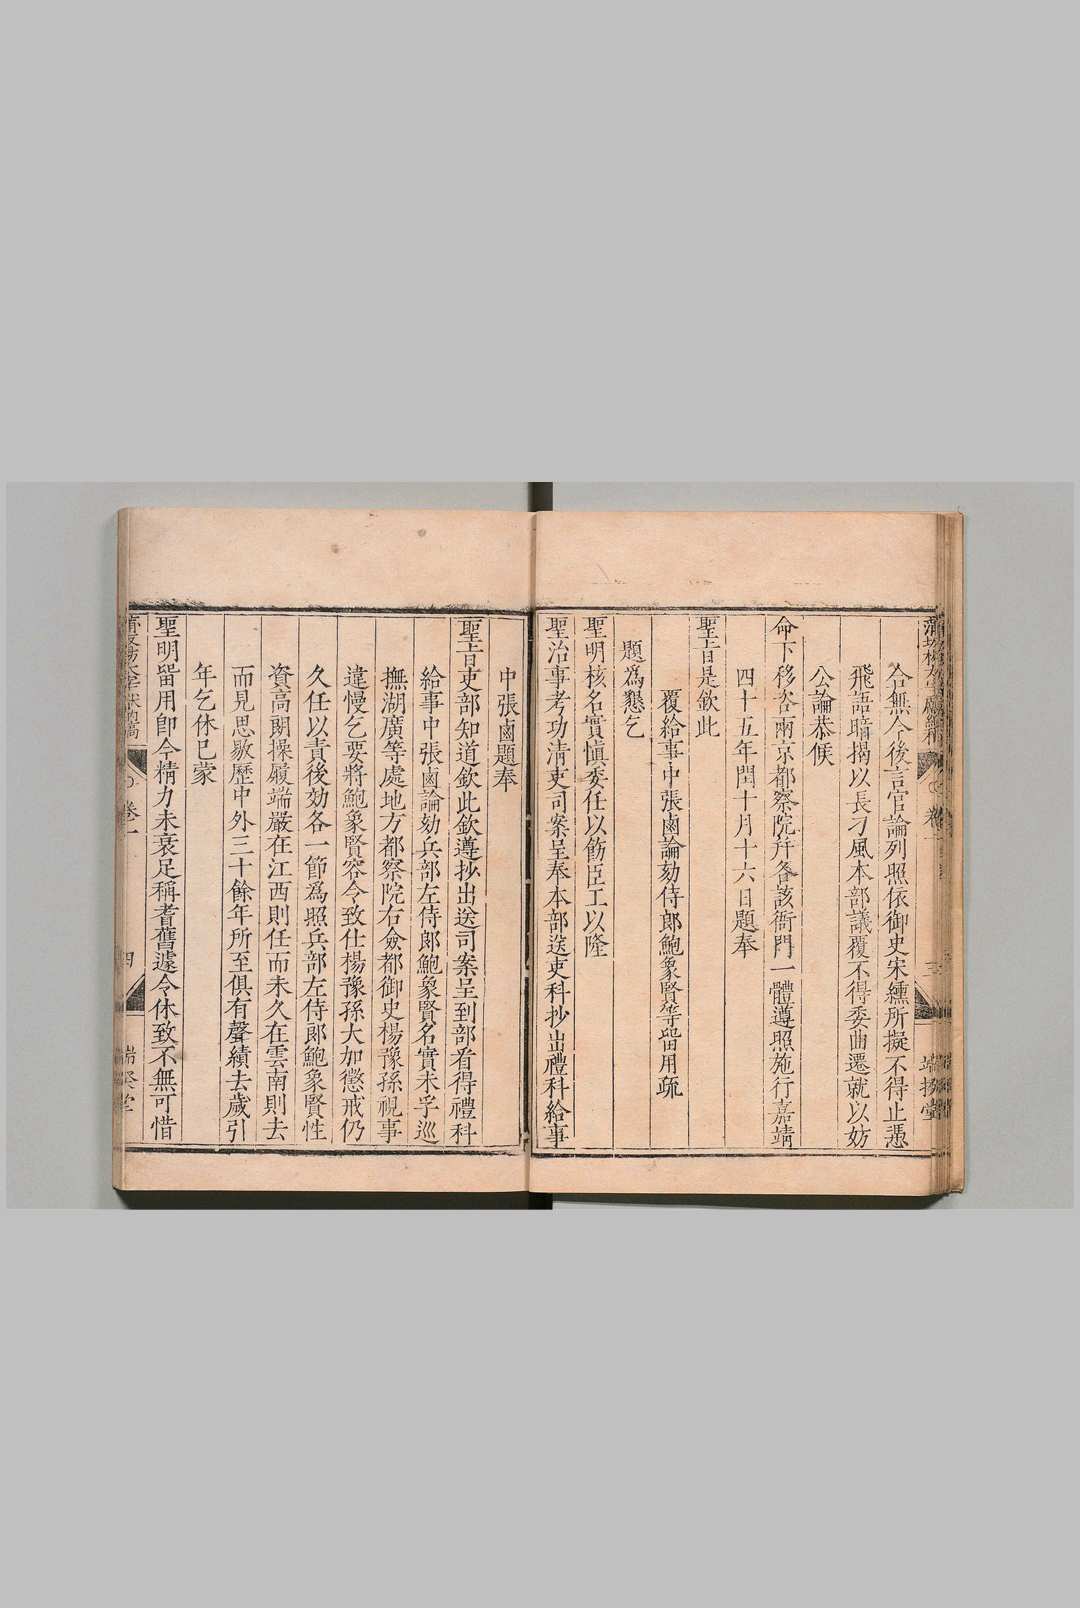 合無今後言官論列照依御史宋纁所擬不得止憑
飛語暗揭以長刁風本部議覆不得委曲遷就以妨
公論恭候
命下移咨兩京都察院幷各該衙門一體遵照施行嘉靖
四十五年閏十月十六日題奉
聖旨是欽此
覆給事中張鹵論劾侍郎鮑象賢等留用疏
題爲懇乞
聖明核名實愼委任以飭臣工以隆
聖治事考功淸吏司案呈奉本部送吏科抄出禮科給事
中張鹵題奉
聖旨吏部知道欽此欽遵抄出送司案呈到部看得禮科
給事中張鹵論劾兵部左侍郎鮑象賢名實未孚巡
撫湖廣等處地方都察院右僉都御史楊豫孫視事
違慢乞要將鮑象賢容令致仕楊豫孫大加懲戒仍
久任以責後効各一節爲照兵部左侍郎鮑象賢性
資高朗操履端嚴在江西則任而未久在雲南則去
而見思敭歷中外三十餘年所至俱有聲績去歲引
年乞休已蒙
聖明留用卽今精力未衰足稱耆舊遽令休致不無可惜
卷一
四